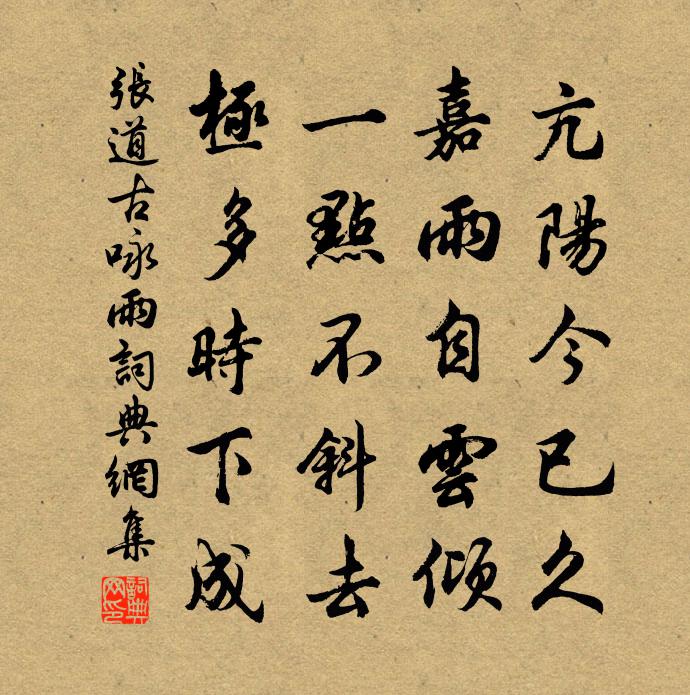 亢陽今已久
嘉雨自雲傾
一點不斜去
極多時下成
張道古咏雨詞典網集
詞典网印